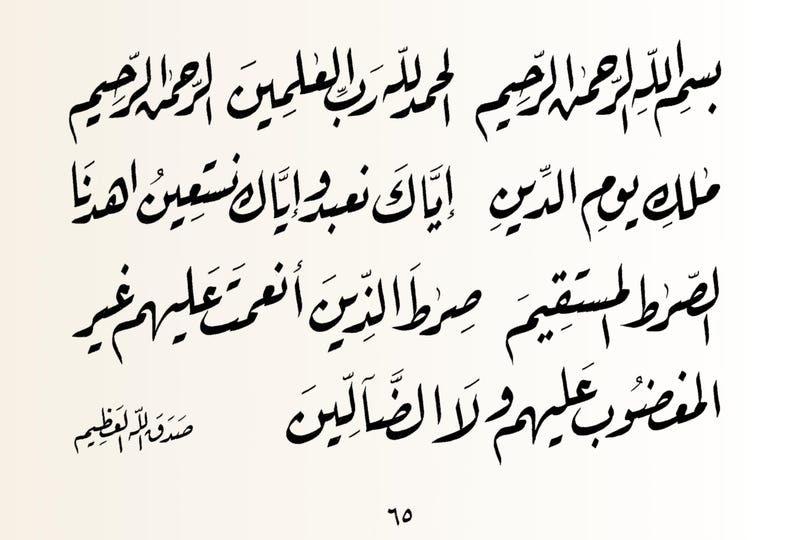 بسم اللّٰه الرّحمٰن الرّحِيم الحمد للّه رَبِّ العٰلمِينَ الرّحمٰن الرّحِيم
مٰلكِ يومِ الدِّينِ إيَّاكَ نعبد وإيَّاك نستَعِينُ اهدنَا
الصّرٰط المستَقِيمَ صِرٰطَ الذِّينَ أنعمتَ عَليهم غير
المغضُوب عَليهم ولَا الضَّآلِّينَ صَدَقَ اللّه العَظِيم
٦٥